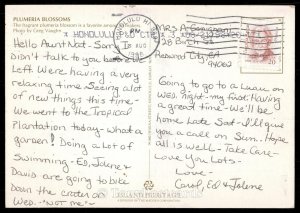 PLUMERIA BLOSSOMS
The fragrant plumeria blossom is a favorite among
Photo by Greg Vaughn
HONOLULU HI
PM
13 AUG
1990
HONOLULU
Hello Aunt Nat - Sorry
Didn't talk to you before we
Left. Were having a very
relaxing time. Seeing alot
of new things this time -
We went to the Tropical
Plantation today - what a
garden! Doing a lot of
Swimming - Ed, Jolene &
David are going to bike
Down the crater on
Wed. - "NOT ME"
Mrs A
28 Birch St.
Redwood City, CA
94062
USA
Going to go to a Luau on
Wed. Night - my first. Having
a great time - We'll be
home Late Sat - I'll give
you a call on Sun. Hope
all is well - Take Care -
Love You Lots -
Love -
Carol, Ed & Jolene